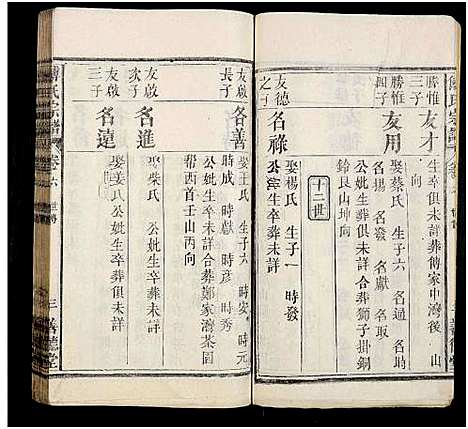 勝惟
三子
友才
生卒俱未詳葬傅家中灣後山
向
勝惟
四子
友用
娶蔡氏 生子六 名通
名揚 名發 名獻 名取
公妣生卒葬俱未詳葬獅子掛銅
鈴艮山坤向
十二世
友德
之子
名祿
娶楊氏 生子一 時發
公妣生卒葬未詳
傅氏宗譜
卷六 世傳
三 善德堂
友啟
長子
名善
娶王氏 生子 時安 時元
時成 時獻 時彦 時秀
公妣生卒未詳合葬鄭家灣茶園
幫酉首壬山丙向
友啟
次子
名進
娶柴氏 公妣生卒葬俱未詳
友啟
三子
名遠
娶姜氏 公妣生卒葬俱未詳